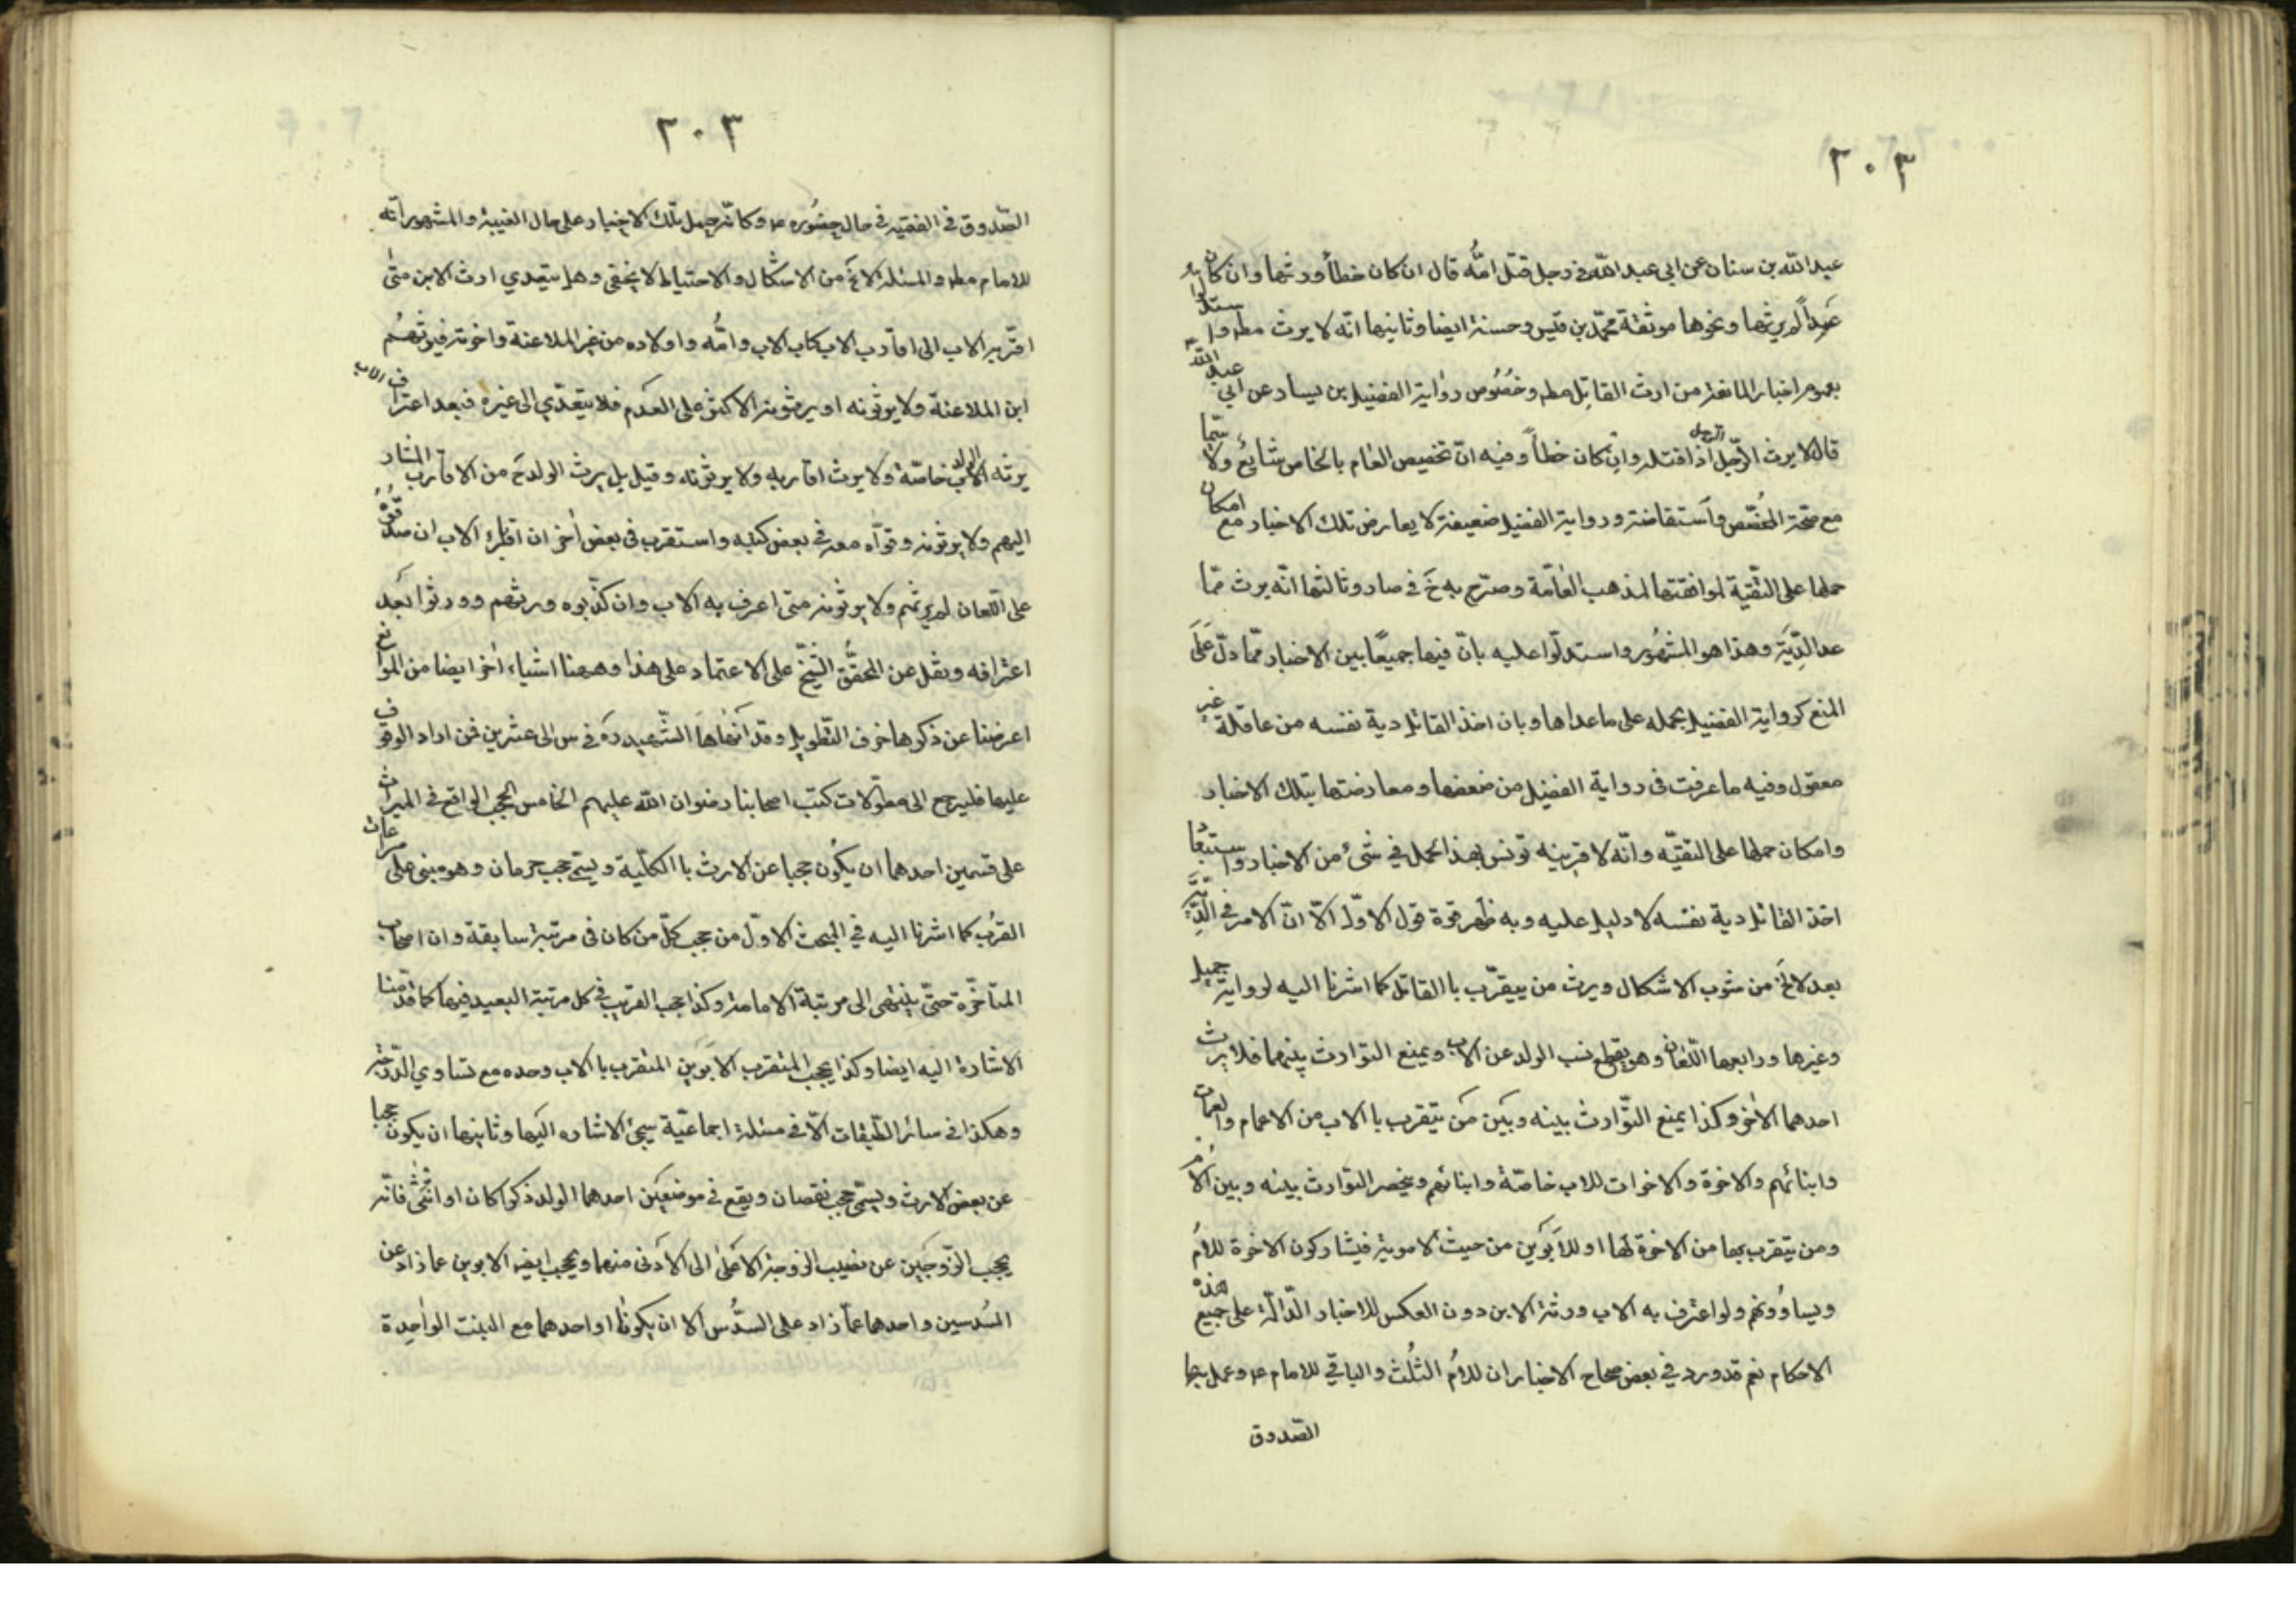 ٢٠٣
عبد الله بن سنان عن ابي عبد الله ع في رجل قتل امّه قال ان كان خطأ ورثها وان كان
عمداً لم يرثها ونحوها موثقة محمّد بن قيس وحسنة ايضا وثانيها انّه لا يرث مطم واستدلوا له
بعموم اخبار المانعة من ارث القاتل مطم وخصُوص رواية الفضيل بن يسار عن ابي عبد الله
قال لا يرث الرّجل الرجل اذا قتله وان كان خطأً وفيه انّ تخصيص العام بالخاص شائع ولا سيّما
مع صحّة المخصّص وأستفاضته ورواية الفضيل ضعيفة لا يعارض تلك الاخبار مع امكان
حملها على التّقيّة لموافقتها لمذهب العامّة وصرّح به خ في صار وثالثها انّه يرث ممّا
عدا الدّية وهذا هو المشهُور واستدلّوا عليه بانّ فيها جميعًا بين الاخبار ممّا دلّ على
المنع كرواية الفضيل يحمله على ما عداها وبان اخذ القاتل دية نفسه من عاقلة غير
معقول وفيه ما عرفت فى رواية الفضيل من ضعفها ومعارضتها بتلك الاخبار
وامكان حملها على التقيّه وانّه لا قرينه تونس بهذا الحمل في شئ من الاخبار واستبعاد
اخذ القاتل دية نفسه لا دليل عليه وبه ظهر قوة قول الاوّل الّا انّ الامر في الدّيّة
بعد لا يخ من شوب الاشكال ويرث من يتقرّب باالقاتل كما اشرنا اليه لرواية جميل
وغيرها ورابعها اللّعان وهو يقطع نسب الولد عن الاب ويمنع التوارث بينهما فلا يرث
احدهما الأخر وكذا يمنع التّوارث بينه وبَين مَن يتقرب باالاب من الاعمام والعمات
وابنائهم والاخوة والاخوات للاب خاصّة وابنائهم وينحصر التوارث بينه وبين الام
ومن يتقرب بها من الاخوة لها او للأبَوَين من حيث الاموية فيشاركون الاخوة للامُ
ويساوُونهم ولو اعترف به الاب ورثة الابن دون العكس للاخبار الدّالّة على جميع هذه
الاحكام نعم قد ورد في بعض صحاح الاخبار ان للامُ الثُلث والباقي للامام ع وعمل بها
الصّدوق
٢٠٣
الصّدوق في الفقيه في حال حضُوره ع وكانّه حمل تلك الاخبار على حال الغيبة والمشهور انّه
للامام مطم والمسئلة لا يخ من الاشكال والاحتياط لا يخفى وهل يتعدي ارث الابن متىٰ
اقرّ به الاب الى اقارب الاب كاب الاب وامُّه واولاده من غير الملاعنة واخوته فيرثهُم
ابن الملاعنة ولا يورثونه او يرثونه الاكثر على العدَم فلا يتعدّي الى غيره فبعد اعتراف الاب
يرثه الاب الولد خاصّة ولا يرث اقاربه ولا يرثونه وقيل بل يرث الولد ح من الاقارب المشار
اليهم ولا يرثونه وقوّاه مه في بعض كتبه واستقرب فى بعض أخر ان اقارب الاب ان صدّقوه
على اللّعان لم يرثهم ولا يرثونه متى اعرف به الاب وان كذّبوه ورثهم وورثوا بعَد
اعترافه ونقل عن المحقّق الشّيخ على الاعتماد على هذا وهيهنا اشياء أخر ايضا من الموانع
اعرضنا عن ذكرها خوف التّطويل وقد أنهاهَا الشّهيد ره في س الى عشرين فمن اراد الوقوف
عليها فليرجع الى مطوّلات كتب اصحابنا رضوان الله عليهم الخامس الحجب الواقع في الميراث
على قسمين احدهما ان يكُون حجبا عن الارث باالكلّية ويسمّى حجب حرمان وهو مبنى على مراعات
القرُب كما اشرنا اليه في المبحث الاوّل من حجب كلّ من كان فى مرتبة سابقة وان اصحاب
المتاخّرة حتّى ينتهى الى مرتبة الامامة وكذا حجب القريب في كل مرتبة البعيد فيها كما قدّمنا
الاشارة اليه ايضا وكذا يحجب المتقرب الابَوَين المتقرب باالاب وحده مع تساوي الدّرجة
وهكذا في سائر الطّبقات الّا في مسئلة اجماعيّة سيجئ الاشاره اليَها وثانيها ان يكون حجبا
عن بعض الارث ويسمّى حجب نقصان ويقع في موضعَين احدهما الولد ذكرا كان او انثىٰ فانّه
يحجب الزّوجَين عن نصيب الزوجية الاعَلىٰ الى الاَدنى منهما ويحجب ايضه الابوين عما زاد عن
السُدسين واحدهما عمّا زاد على السدُّس الا ان يكونٰا او احدهما مع البنت الواحِدة